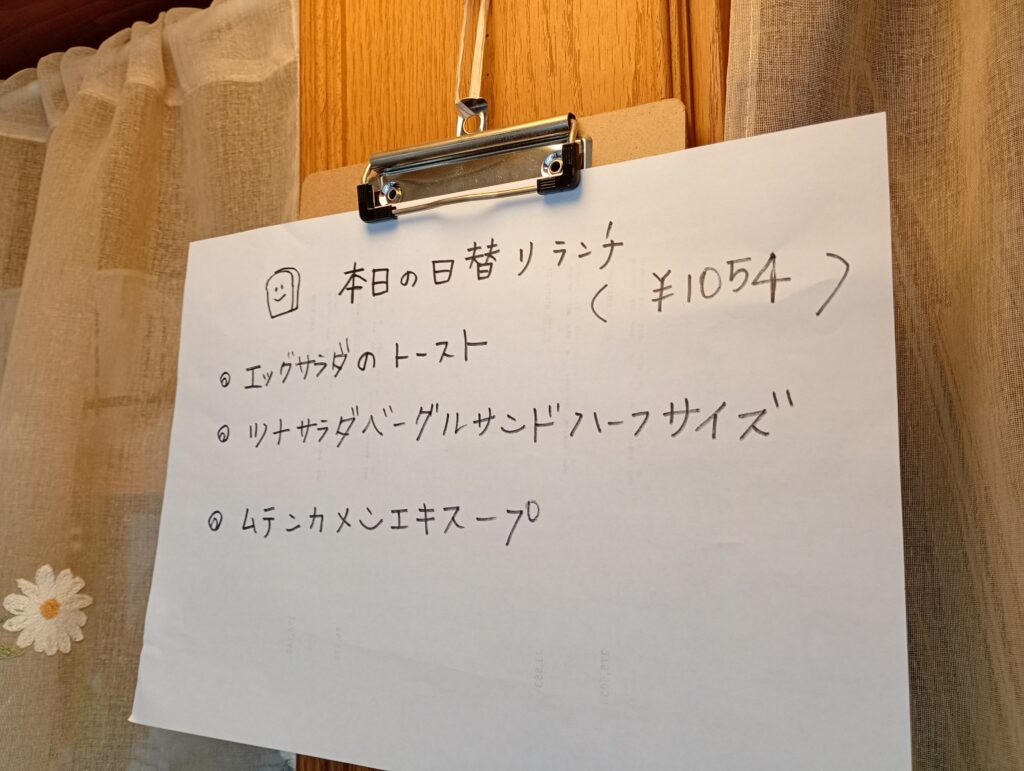 本日の日替りランチ
( ¥1054 )
エッグサラダのトースト
ツナサラダベーグルサンドハーフサイズ
ムテンカメンエキスープ